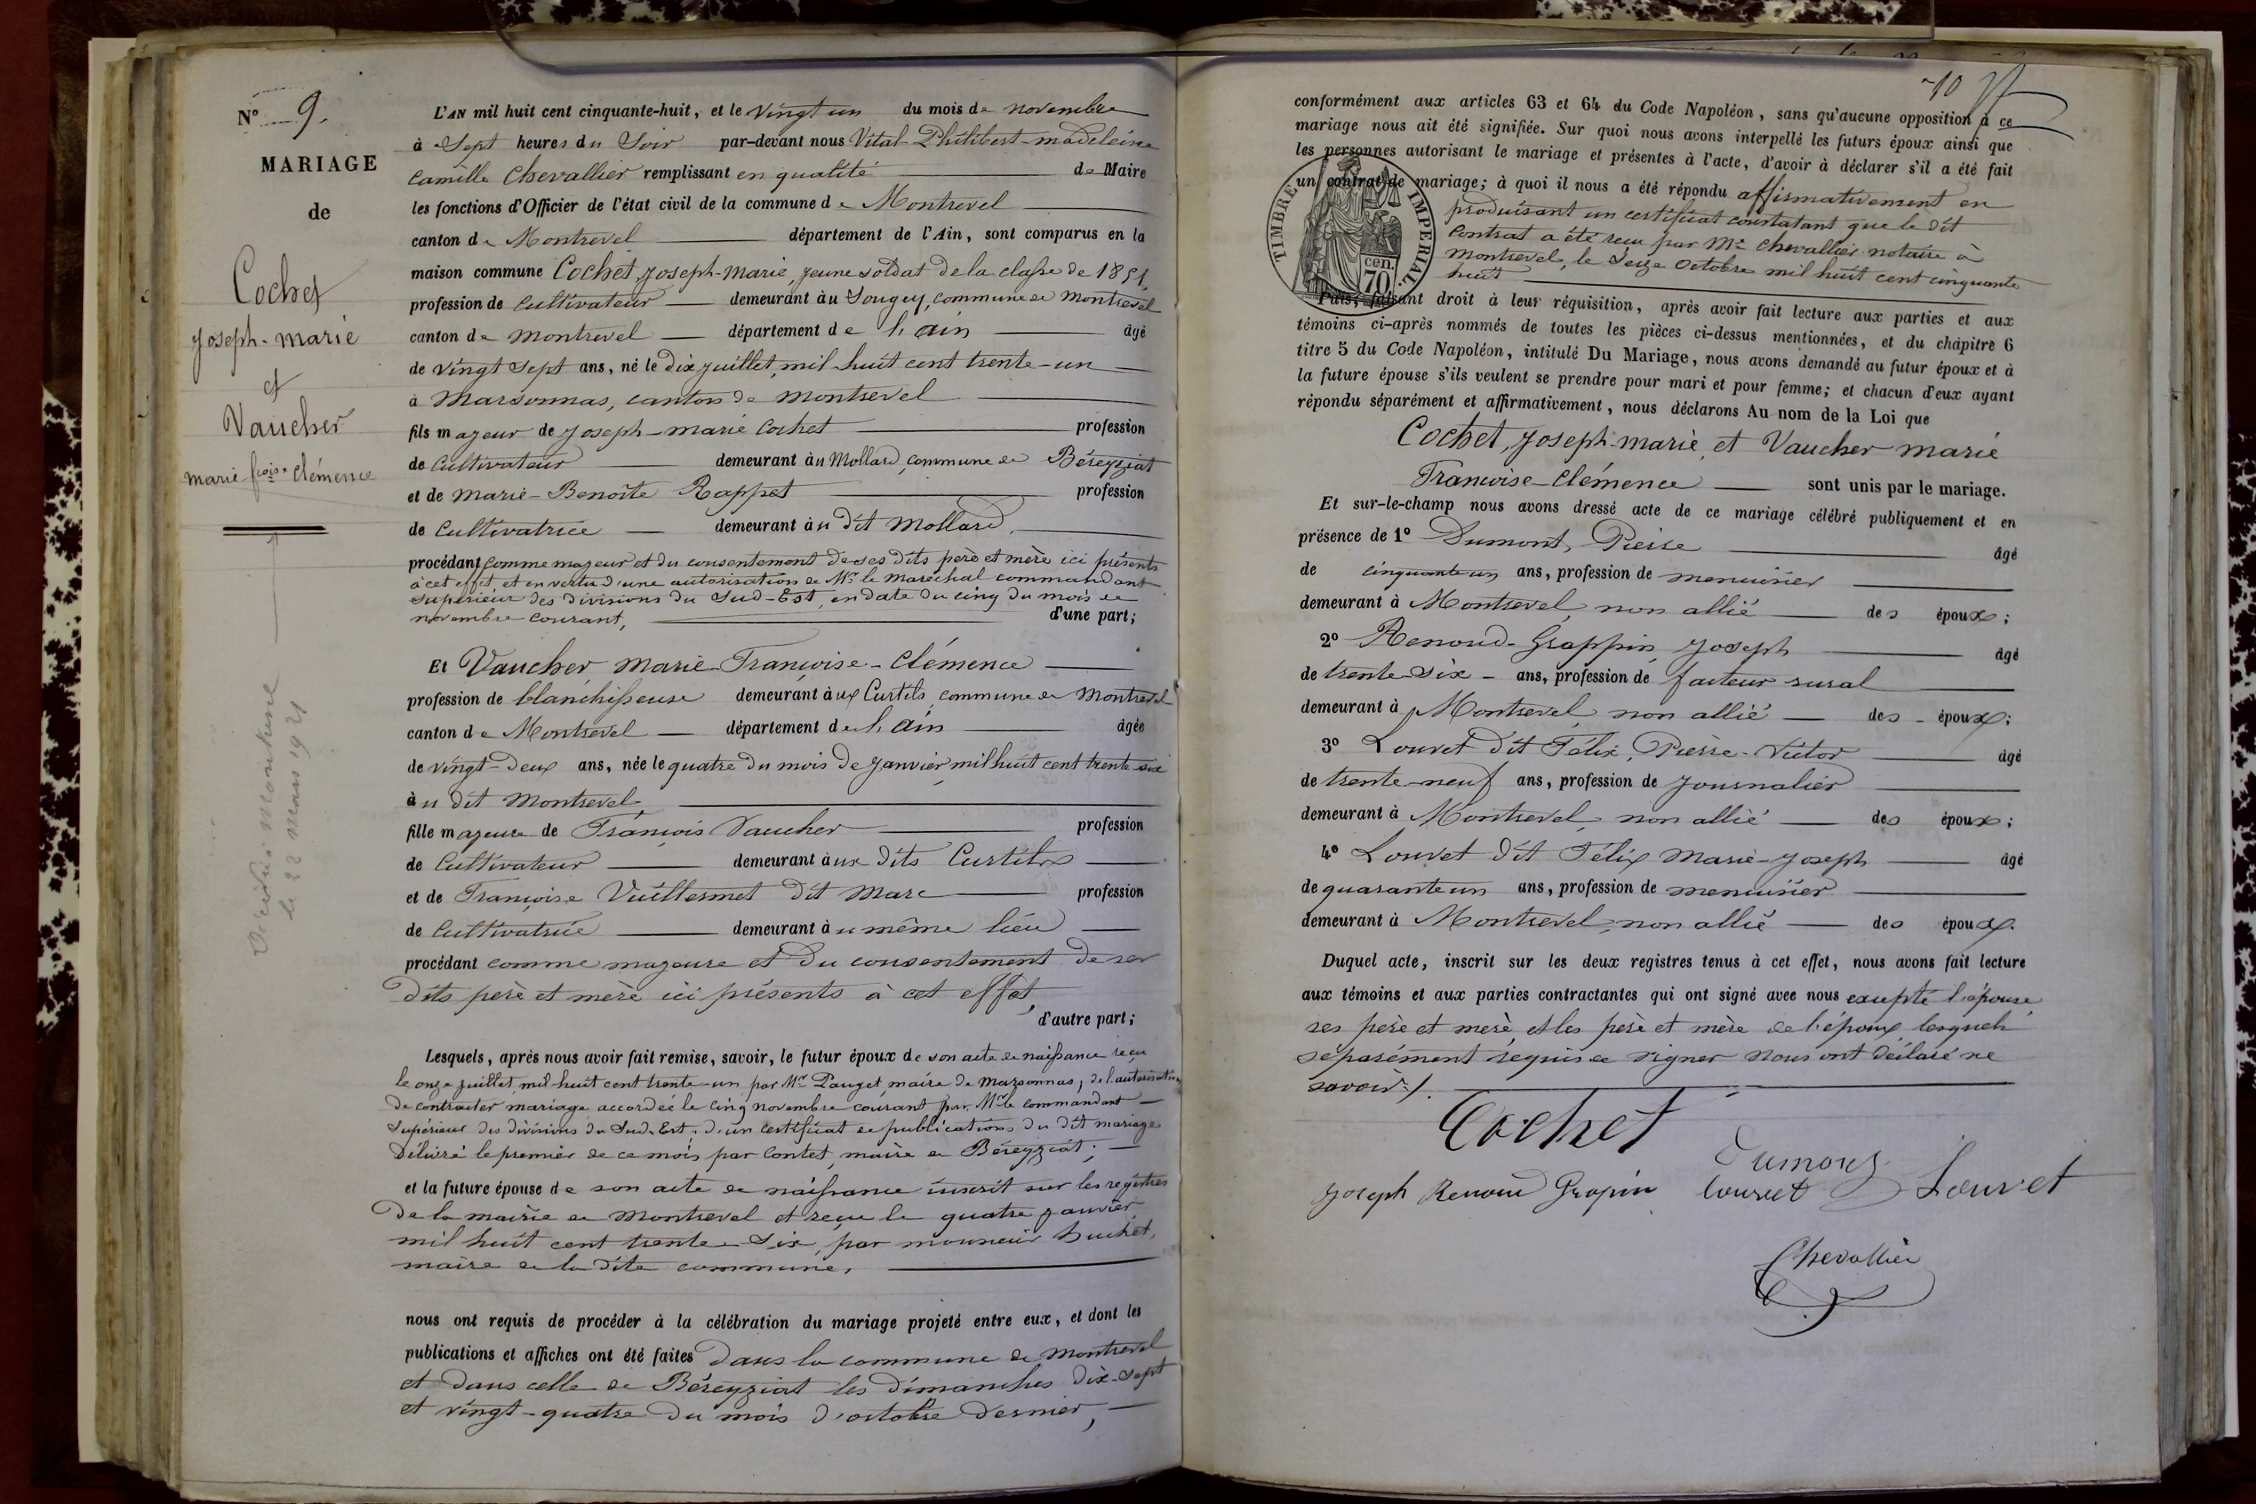 N° 9.
MARIAGE
de
Cochet
Joseph-marie
et
Vaucher
marie fçoise Clémence
Décédée Montrevel
le 22 Mars 1921
L'AN mil huit cent cinquante-huit, et le vingt un du mois de novembre
à Sept heures du Soir par-devant nous Vital-Philibert-madeleine
Camille Chevallier remplissant en qualité de Maire
les fonctions d'Officier de l'état civil de la commune de Montrevel
canton de Montrevel département de l'Ain, sont comparus en la
maison commune Cochet, Joseph-marie, jeune soldat de la classe de 1851,
profession de cultivateur demeurant au Sougey, commune de Montrevel
canton de Montrevel département de l'ain âgé
de vingt sept ans, né le dix juillet, mil huit cent trente-un
à Marsonnas, canton de Montrevel
fils majeur de Joseph-marie Cochet profession
de Cultivateur demeurant au Mollard, commune de Béreyziat
et de Marie-Benoîte Rappet profession
de cultivatrice demeurant au dit Mollard,
procédant comme majeur et du consentement de ses dits père et mère ici présents
à cet effet, et en vertu d'une autorisation de Mr le maréchal commandant
supérieur des divisions du Sud-Est, en date du cinq du mois de
novembre courant, d'une part;
Et Vaucher Marie-Françoise-Clémence
profession de blanchisseuse demeurant aux Curtils, commune de Montrevel
canton de Montrevel département de l'ain âgée
de vingt-deux ans, née le quatre du mois de Janvier mil huit cent trente six
au dit Montrevel,
fille majeure de François Vaucher profession
de Cultivateur demeurant aux dits Curtils
et de Françoise Vuillermet dit Marc profession
de Cultivatrice demeurant au même lieu
procédant comme majeure et du consentement de ses
dits père et mère ici présents à cet effet,
d'autre part;
Lesquels, après nous avoir fait remise, savoir, le futur époux de son acte de naissance reçu
le onze juillet mil huit cent trente-un par Mr Pauget maire de Marsonnas, de l'autorisation
de contracter mariage accordée le cinq novembre courant par Mr le commandant
Supérieur des divisions du Sud-Est; d'un certificat de publications du dit mariage
délivré le premier de ce mois par Contet, maire de Béreyziat;
et la future épouse de son acte de naissance inscrit sur les registres
de la mairie de Montrevel et reçu le quatre janvier
mil huit cent trente-Six, par monsieur huchet,
maire de la dite commune.
nous ont requis de procéder à la célébration du mariage projeté entre eux, et dont les
publications et affiches ont été faites dans la commune de Montrevel
et dans celle de Béreyziat les dimanches dix-sept
et vingt-quatre du mois d'octobre dernier,
10
conformément aux articles 63 et 64 du Code Napoléon, sans qu'aucune opposition à ce
mariage nous ait été signifiée. Sur quoi nous avons interpellé les futurs époux ainsi que
les personnes autorisant le mariage et présentes à l'acte, d'avoir à déclarer s'il a été fait
un contrat de mariage; à quoi il nous a été répondu affirmativement en
produisant un certificat constatant que le dit
Contrat a été reçu par Me Chevallier notaire à
Montrevel, le Seize Octobre mil huit cent cinquante
huit
TIMBRE IMPERIAL
cen.
70
Puis, faisant droit à leur réquisition, après avoir fait lecture aux parties et aux
témoins ci-après nommés de toutes les pièces ci-dessus mentionnées, et du chapitre 6
titre 5 du Code Napoléon, intitulé Du Mariage, nous avons demandé au futur époux et à
la future épouse s'ils veulent se prendre pour mari et pour femme; et chacun d'eux ayant
répondu séparément et affirmativement, nous déclarons Au nom de la Loi que
Cochet, Joseph-marie, et Vaucher marie
Françoise-Clémence sont unis par le mariage.
Et sur-le-champ nous avons dressé acte de ce mariage célébré publiquement et en
présence de 1° Dumont, Pierre âgé
de cinquante un ans, profession de menuisier
demeurant à Montrevel, non allié des époux;
2° Renoud-Grappin, Joseph âgé
de trente-Six ans, profession de facteur rural
demeurant à Montrevel, non allié des époux;
3° Louvet dit Félix, Pierre-Victor âgé
de trente-neuf ans, profession de Journalier
demeurant à Montrevel, non allié des époux;
4° Louvet dit Félix Marie-Joseph âgé
de quarante un ans, profession de menuisier
demeurant à Montrevel, non allié des époux.
Duquel acte, inscrit sur les deux registres tenus à cet effet, nous avons fait lecture
aux témoins et aux parties contractantes qui ont signé avec nous excepté l'épouse
ses père et mère, et les père et mère de l'époux lesquels
séparément requis de signer nous ont déclaré ne
savoir./.
Cochet
Dumont
Joseph Renoud Grapin Louvet Louvet
Chevallier